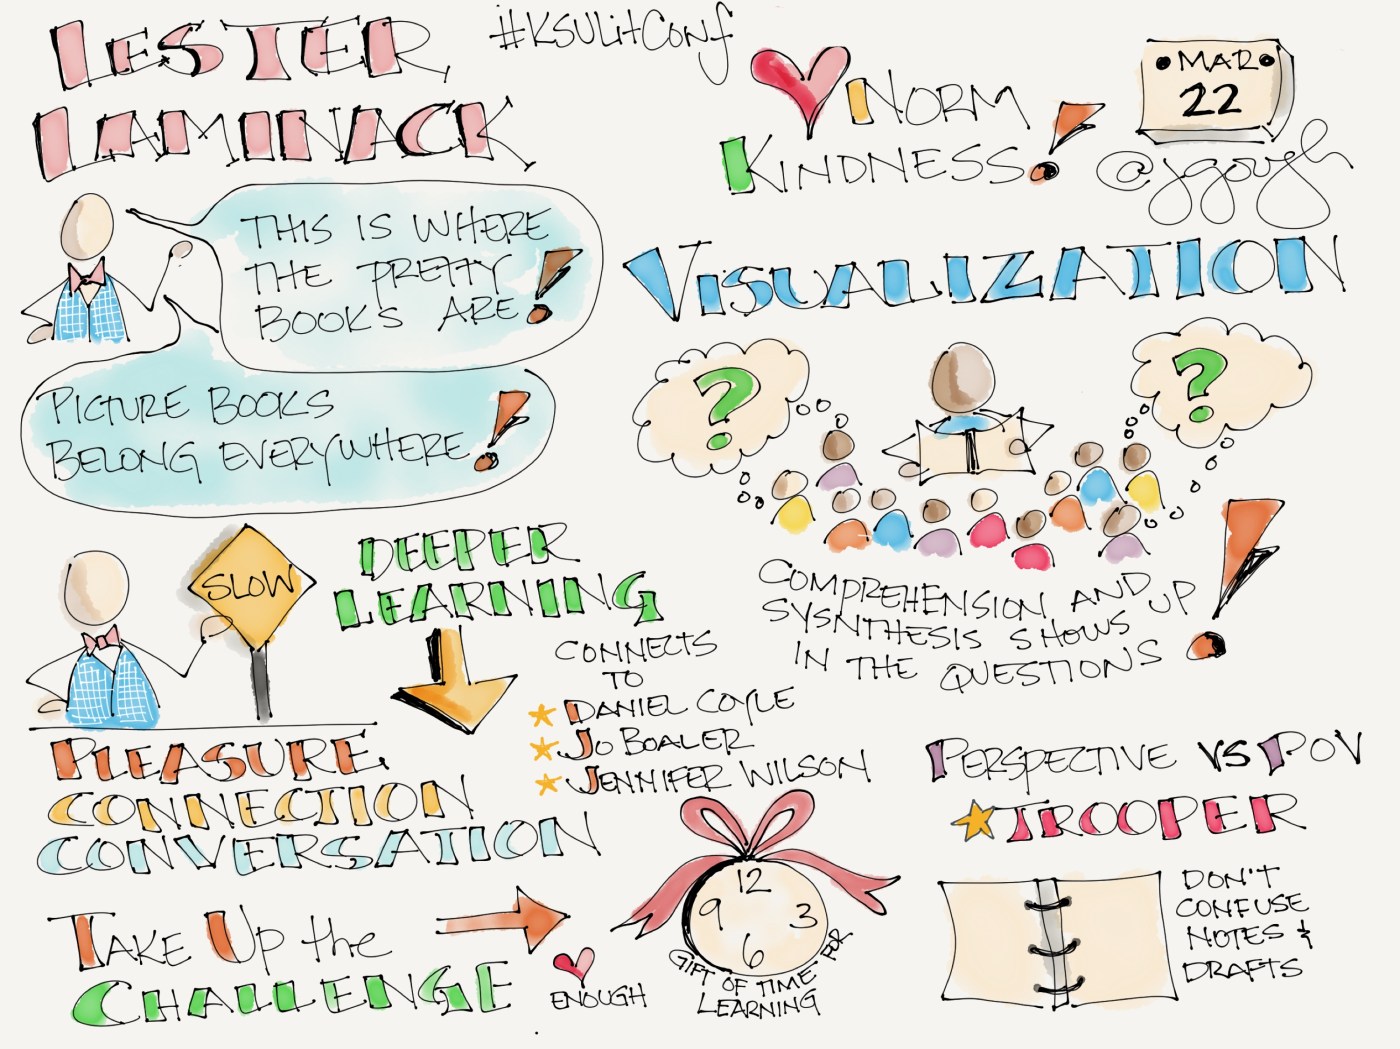 LESTER
LAMINACK
#KSULitConf
NORM
KINDNESS!
MAR
22
@jgough
THIS IS WHERE
THE PRETTY
BOOKS ARE!
PICTURE BOOKS
BELONG EVERYWHERE!
VISUALIZATION
?
?
COMPREHENSION AND
SYSNTHESIS SHOWS UP
IN THE QUESTIONS!
SLOW
DEEPER
LEARNING
CONNECTS
TO
DANIEL COYLE
JO BOALER
JENNIFER WILSON
PLEASURE
CONNECTION
CONVERSATION
PERSPECTIVE VS POV
TROOPER
DON'T
CONFUSE
NOTES &
DRAFTS
TAKE UP the
CHALLENGE
ENOUGH
12
9 3
6
GIFT OF TIME FOR
LEARNING